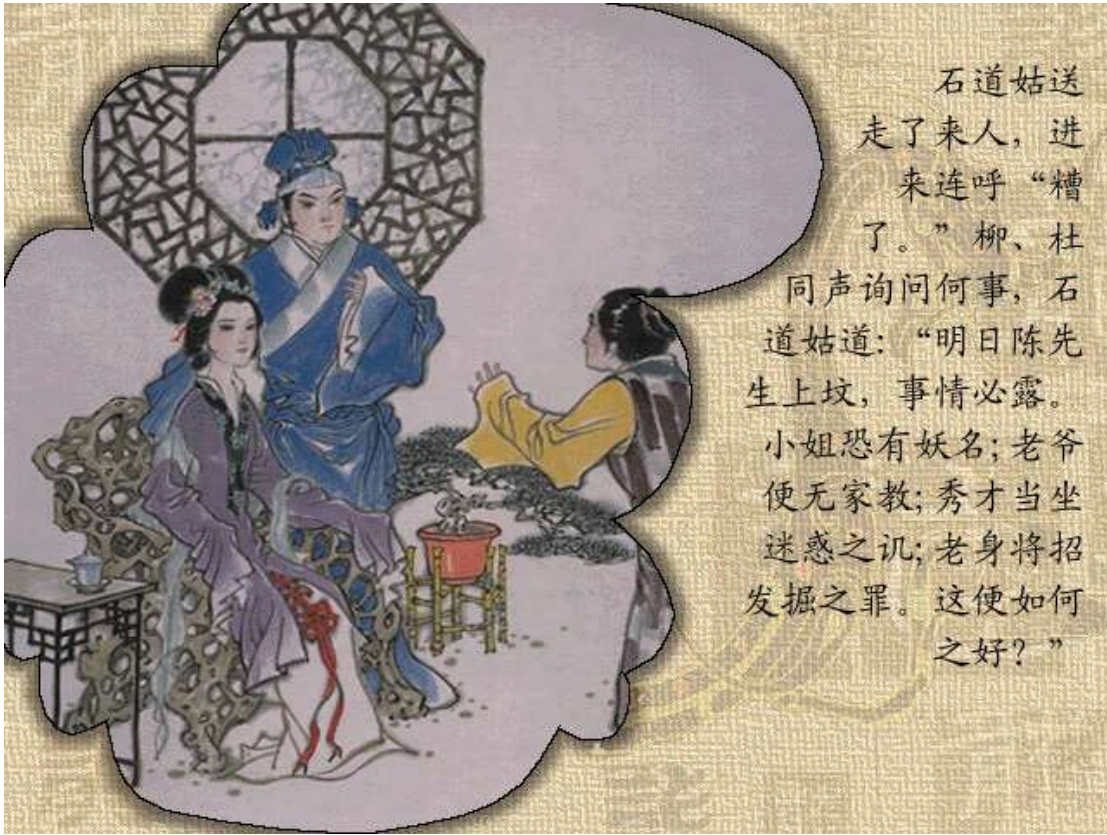 石道姑送
走了来人，进
来连呼“糟
了。”柳、杜
同声询问何事，石
道姑道：“明日陈先
生上坟，事情必露。
小姐恐有妖名；老爷
便无家教；秀才当坐
迷惑之讥；老身将招
发掘之罪。这便如何
之好？”